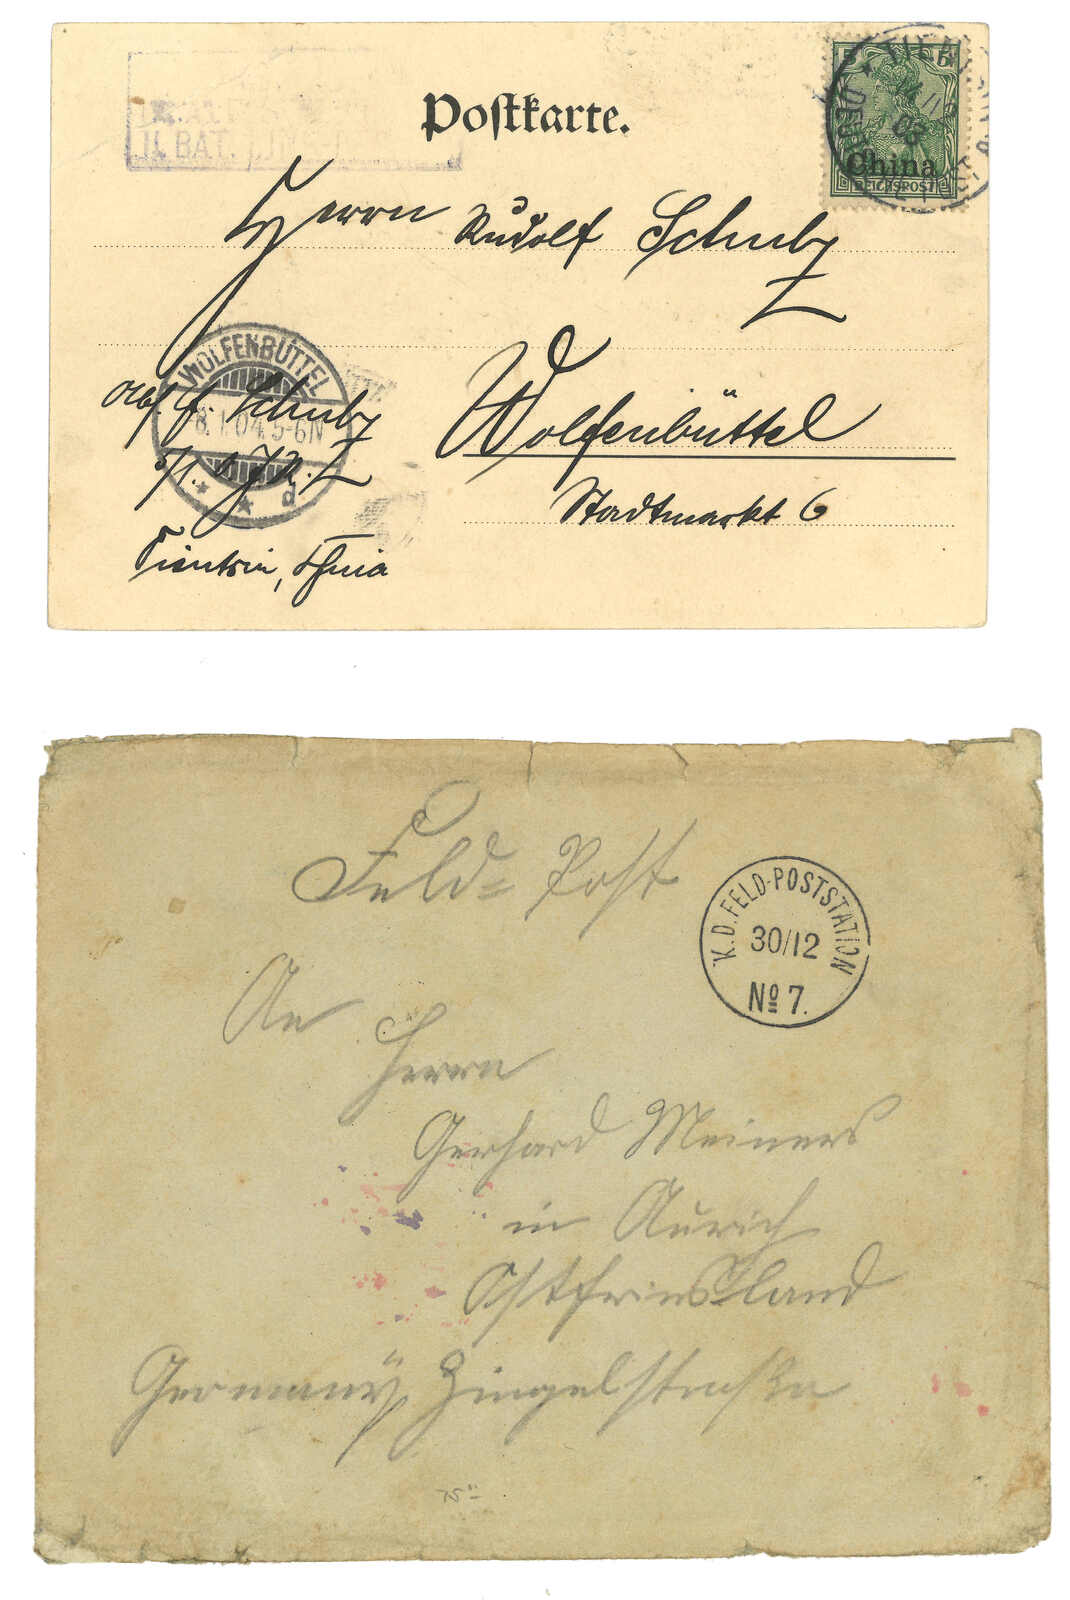 Postkarte.
II. BAT.
5 5
China
REICHSPOST
03
Herrn Rudolf Schulz
Wolfenbüttel
Stadtmarkt 6
WOLFENBÜTTEL
8.1.04.5-6N
d
Schulz
Tientsin, China
Feld-Post
K.D. FELD-POSTSTATION
30/12
No 7.
An
Herrn
Gerhard Meiners
in Aurich
Ostfriesland
Germany Zingelstraße